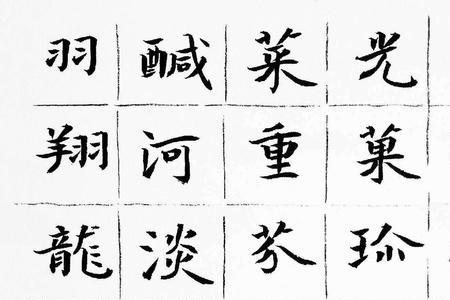 光菓珎
菜重芥
醎河淡
羽翔龍